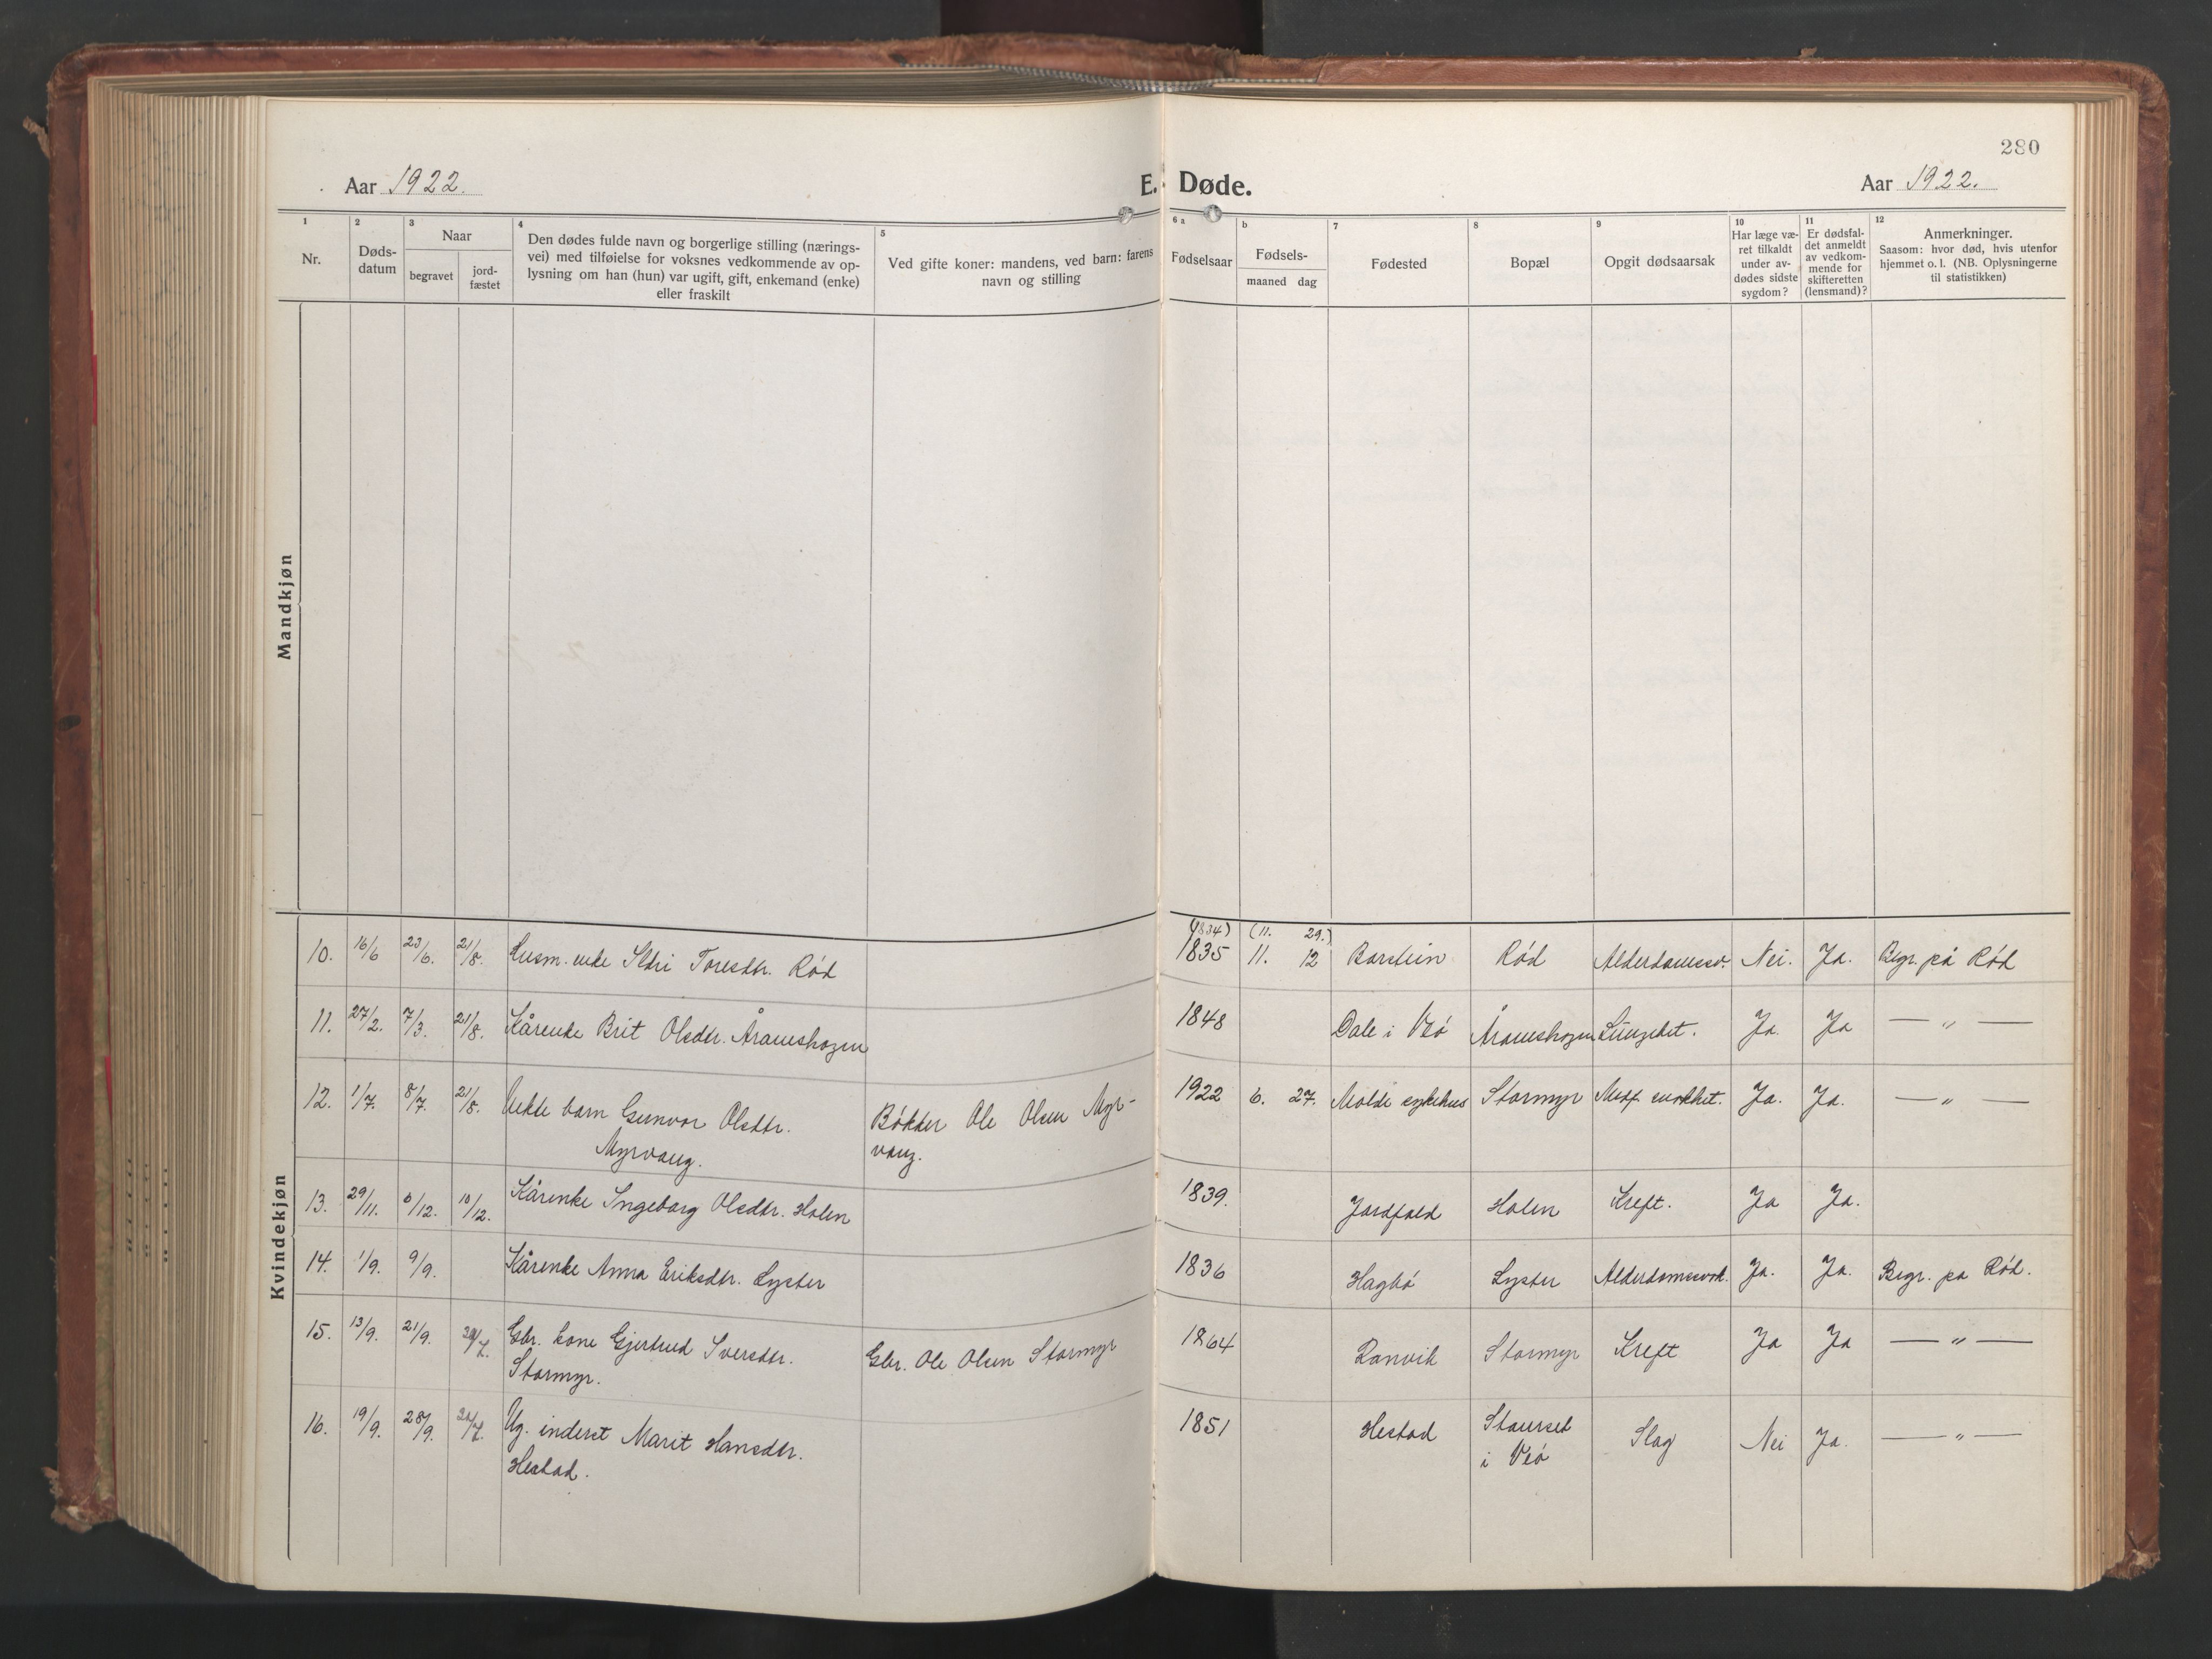 280
Aar 1922.
E. Døde.
Aar 1922.
1 2 3 4 5 6 a b 7 8 9 10 11 12
Nr.
Døds-
datum
Naar
begravet
jord-
fæstet
Den dødes fulde navn og borgerlige stilling (nærings-
vei) med tilføielse for voksnes vedkommende av op-
lysning om han (hun) var ugift, gift, enkemand (enke)
eller fraskilt
Ved gifte koner: mandens, ved barn: farens
navn og stilling
Fødselsaar
Fødsels-
maaned dag
Fødested
Bopæl
Opgit dødsaarsak
Har læge væ-
ret tilkaldt
under av-
dødes sidste
sygdom?
Er dødsfal-
det anmeldt
av vedkom-
mende for
skifteretten
(lensmand)?
Anmerkninger.
Saasom: hvor død, hvis utenfor
hjemmet o. l. (NB. Oplysningerne
til statistikken)
Mandkjøn
Kvindekjøn
(1834) (11. 29.)
10. 16/6 23/6. 21/8. Husm. enke Ildri Toresdtr. Rød 1835 11. 12 Barstein Rød Alderdomssv. Nei. Ja. Begr. på Rød
11. 27/2. 7/3. 21/8. Kårenke Brit Olsdtr. Årøneshagen 1848 Dale i Veø Årøneshagen Lungebet. Ja. Ja — „ —
12. 1/7. 8/7. 21/8. Uekte barn Gunvor Olsdtr. Bøkker Ole Olsen Myr- 1922 6. 27. Molde sykehus Stormyr Medf. svakhet. Ja. Ja. — „ —
Myrvang. vang.
13. 29/11. 6/12. 10/12. Kårenke Ingeborg Olsdtr. Holen 1839. Jordfald Holen Kreft. Ja Ja.
14. 1/9. 9/9. Kårenke Anna Eriksdtr. Lyster 1836 Hagbø Lyster Alderdomssvak. Ja. Ja. Begr. på Rød.
15. 13/9. 21/9. Gbr. kone Gjertrud Iversdtr. Gbr. Ole Olsen Stormyr 1864 Ranvik Stormyr Kreft Ja Ja — „ —
Stormyr.
16. 19/9. 28/9. Ug. inderst Marit Hansdtr. 1851 Hestad Staurset Slag Nei Ja. — „ —
Hestad. i Veø